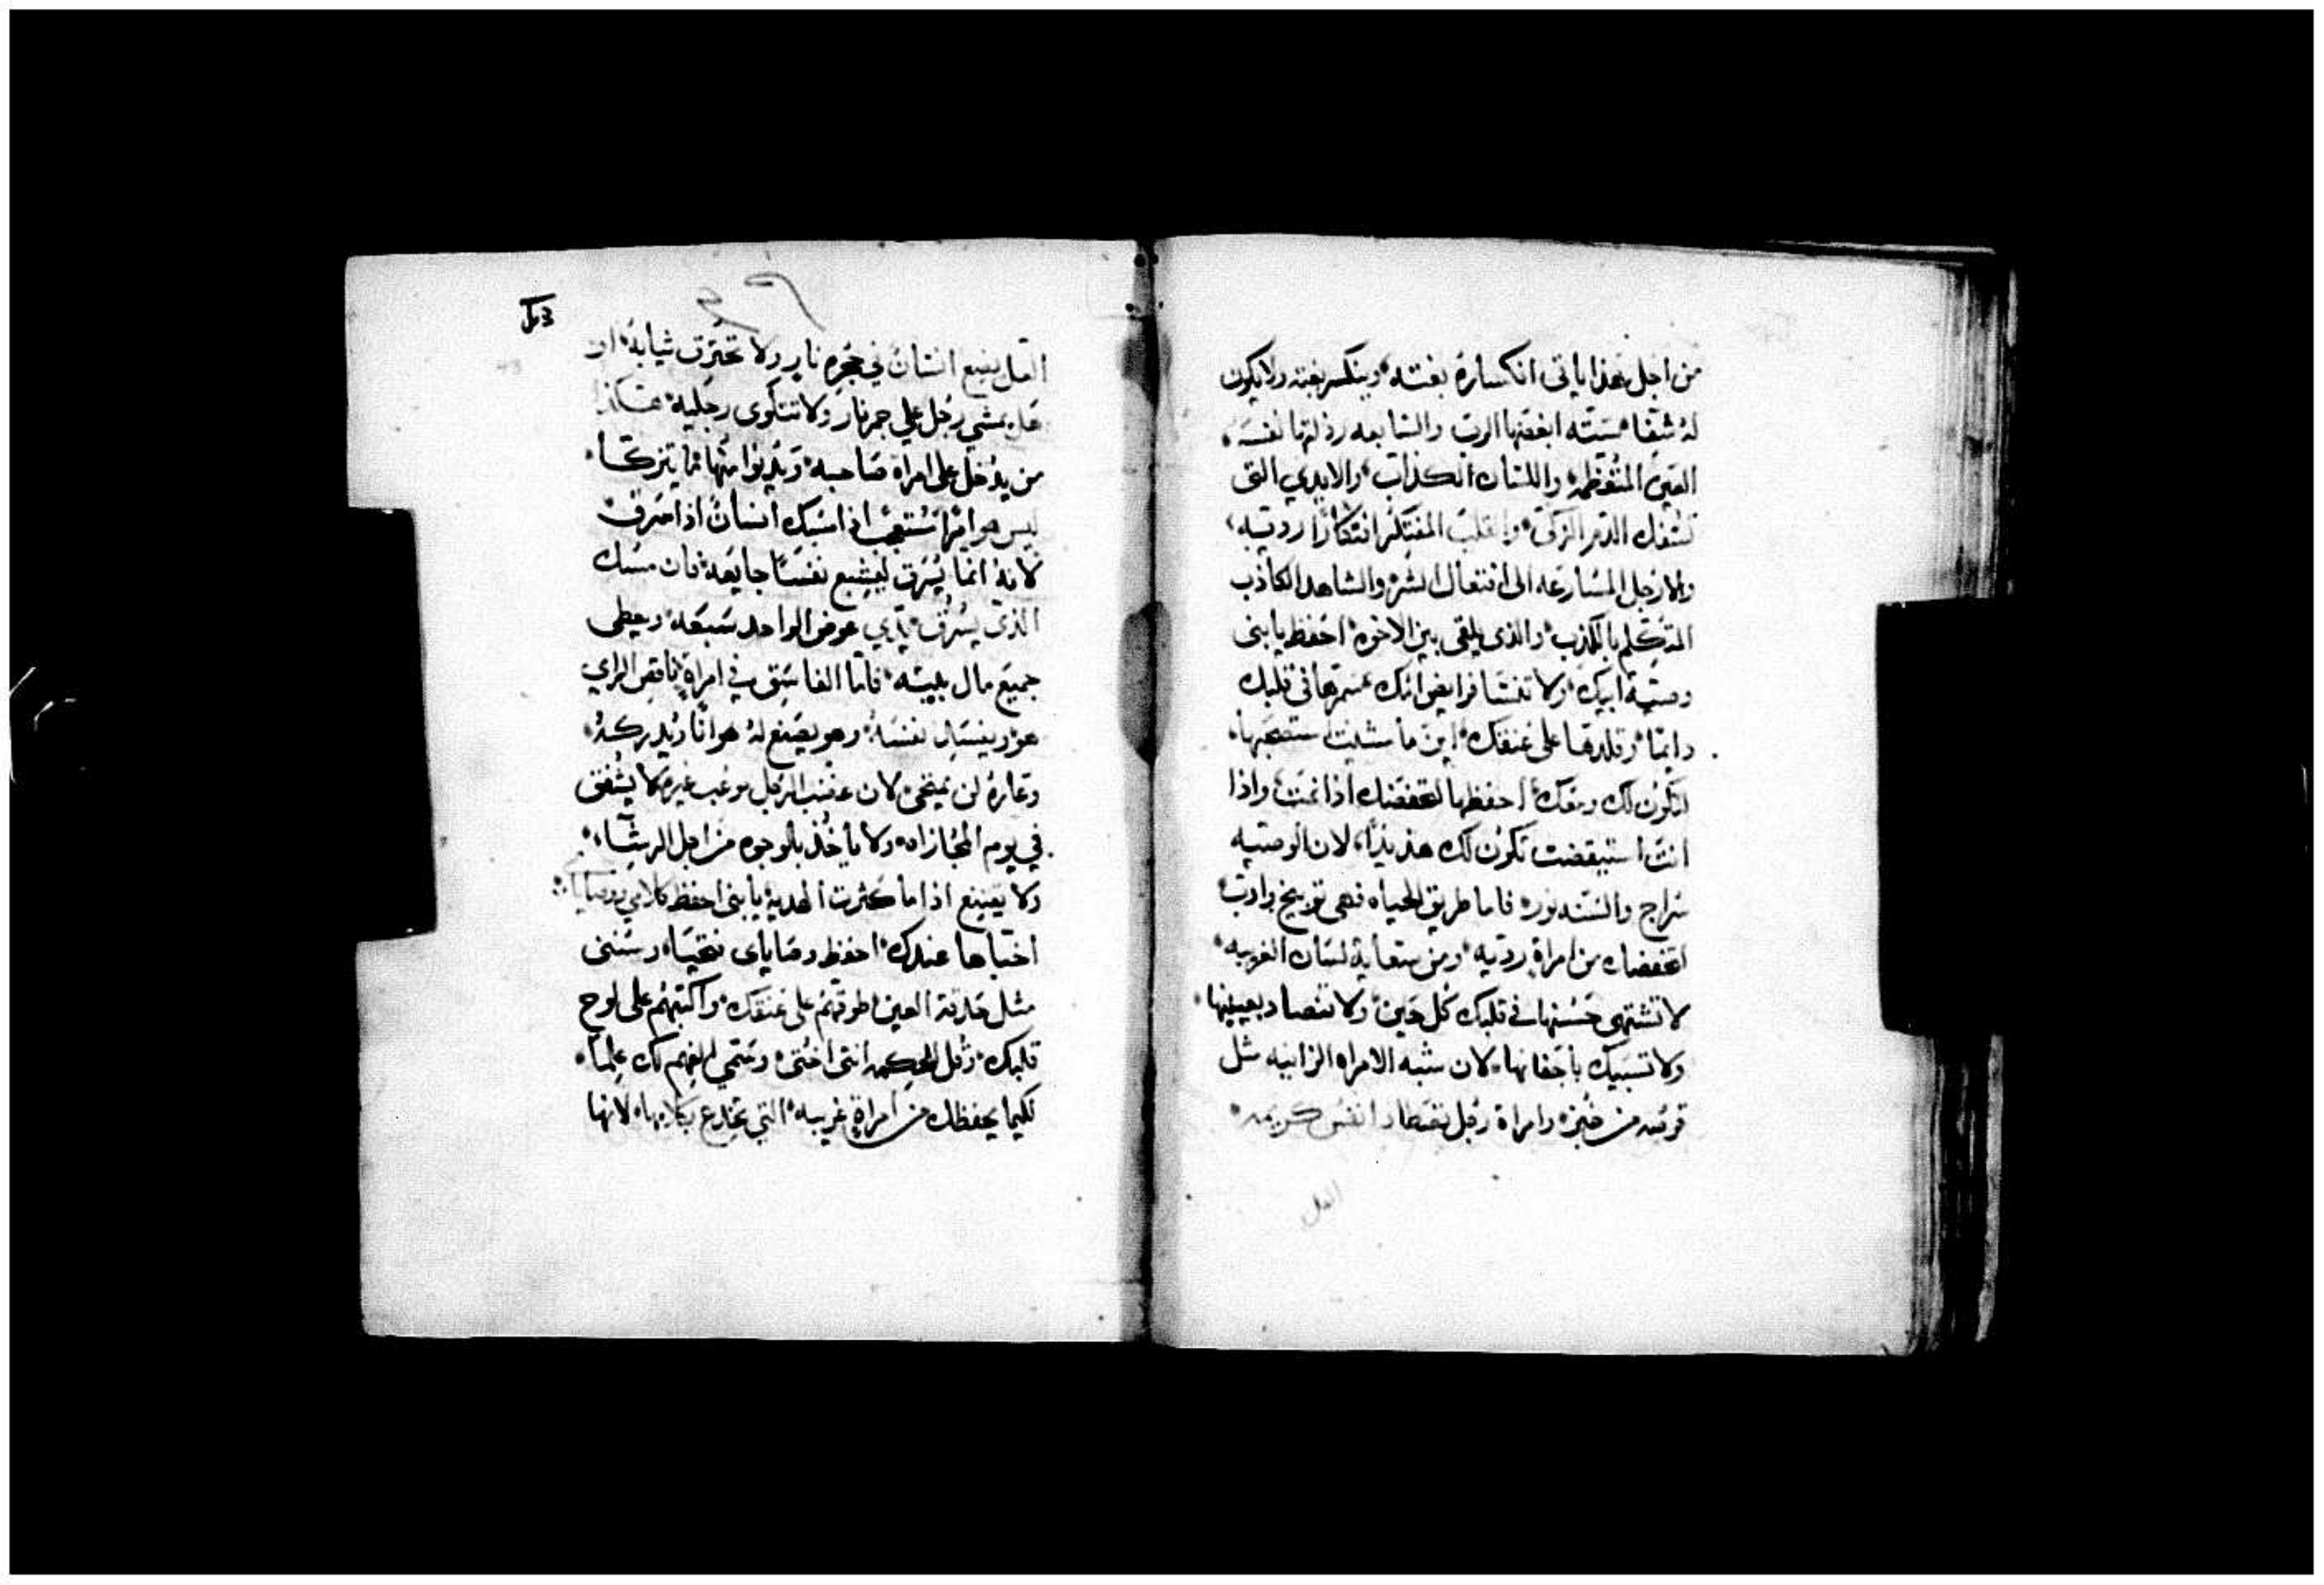 من اجل هذا ياتى انكساره بغتـه وينكسر بغته ولا يكون
له شفا ستـه ابغضها الرب والسابعه رذلتها نفسه
العين المتعظمه واللسان الكذاب والايدي التى
تسفك الدم الزكى والقلب المفتكر افتكارًا رديه
والارجل المسارعه الى افتعال الشر والشاهد الكاذب
المتكلم بالكذب والذى يلقى بين الاخوه احفظ يا بنى
وصية ابيك ولا تنسا فرايض امك سمرها في قلبك
دايمًا وقلدها على عنقك اين ما مشيت استصحبها
لتكون لك ومعك احفظها لتحفضك اذا نمت واذا
انت استيقضت تكون لك هذيذًا لان الوصيه
سراج والسنه نور فاما طريق الحياه فهى توبيخ وادب
لتحفضك من امراة رديه ومن سعاية لسان الغريبه
لا تشتهى حسنها في قلبك كل حين ولا تنصاد بعينيها
ولا تسبيك باجفانها لان شبه الامراه الزانيه مثل
قرصه من خبز وامراة رجل تصطاد انفس كريمه
العل
العل يضع انسان في حجره نار ولا تحترق ثيابه او
هل يمشي رجل علي جمر نار ولا تتكوى رجليه هكذا
من يدخل على امراة صاحبه ويدنوا منها ما يتزكا
ليس هو امرًا تستعجب اذا مسك انسان اذا سرق
لانه انما يسرق ليشبع نفسًا جايعه فان مسك
الذى يسرق يودي عوض الواحد سبعه ويعطى
جميع مال بيته فاما الفاسق في امراة ناقص الراي
هو ويغتال نفسه وهو يصنع له هوانًا ويدركه
وعاره لن يمتحى لان غضب الرجل موعب غيره لا يشفق
في يوم المجازاه ولا ياخذ بالوجوه من اجل الرشاء
ولا يقتنع اذا ما كثرت الهديه يا بنى احفظ كلامي ووصاياي
اخباها عندك احفظ وصاياى فتحيا وسنتى
مثل حدقة العين طوقهم على عنقك واكتبهم على لوح
قلبك وقل للحكمه انتى اختى وسمي الفهم لك علمًا
لكيما يحفظك من امراة غريبه التي تخدع بكلامها لانها